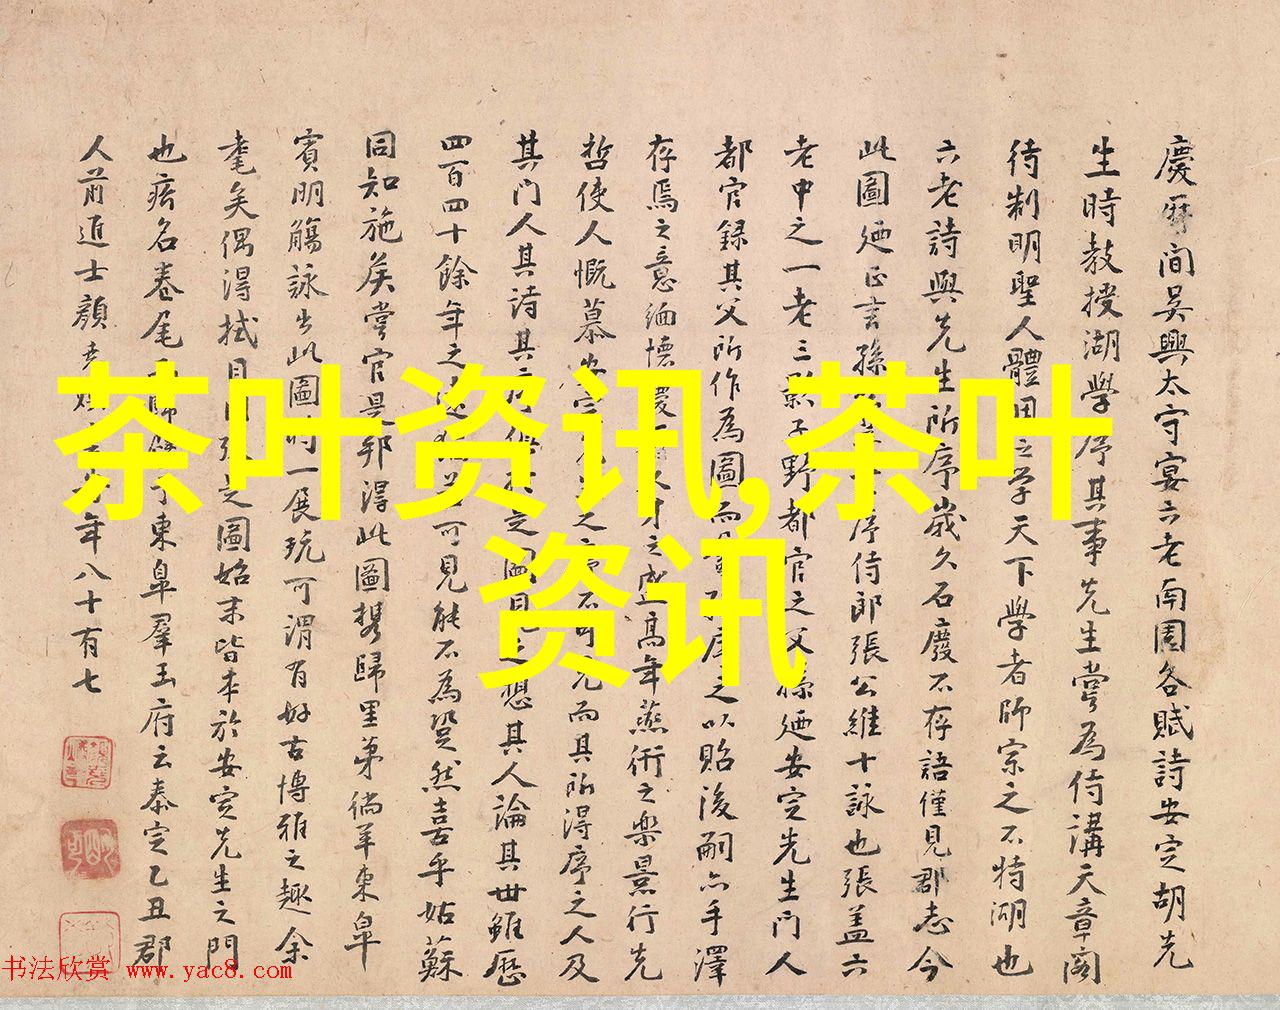 慶曆間吳興太守宴六老南園各賦詩安定胡先
生時教授湖學序其事先生嘗為侍講天章閣
待制明聖人體用之學天下學者師宗之不特湖也
六老詩與先生所序歲久石廢不存語僅見郡志今
此圖廼正言孫 序侍郎張公維十詠也張蓋六
老中之一老三影子野都官之父孫廼安定先生門人
都官録其父所作為圖而 序之以貽後嗣亦手澤
存焉之意緬懷慶 人才之盛高年燕衎之樂景行先
哲使人慨慕安定 之 不可見而其所得序之人及
其門人其詩其 之圖 想其人論其世雖歷
四百四十餘年之 可見能不為 然喜乎姑蘇
同知施矦嘗官是邦得此圖携歸里第徜羊東臯
賓朋觴詠出此圖時一展玩可謂有好古博雅之趣余
耄矣偶得拭目 張之圖始末皆本於安定先生之門
也 名卷尾 東臯羣玉府云泰定乙丑郡
人前進士顏堯煥 年八十有七
茶叶资讯,茶叶
资讯
书法欣赏 www.yac8.com